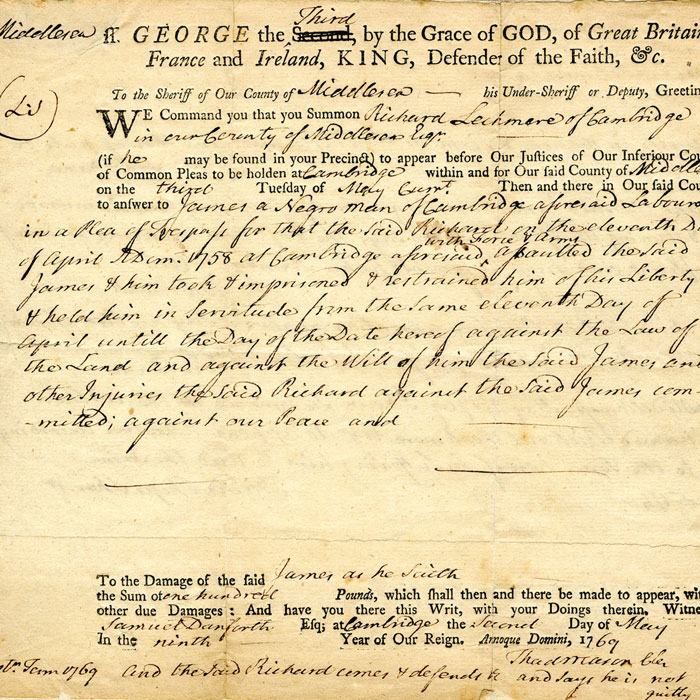 Middlesex ss. GEORGE the Second, Third by the Grace of GOD, of Great Britain
France and Ireland, KING, Defender of the Faith, &c.
To the Sheriff of Our County of Middlesex his Under-Sheriff or Deputy, Greetin
(LS)
WE Command you that you Summon Richard Lechmere of Cambridge
in our County of Middlesex Esqr.
(if he may be found in your Precinct) to appear before Our Justices of Our Inferiour Cou
of Common Pleas to be holden at Cambridge within and for Our said County of Middle
on the third Tuesday of May Currt. Then and there in Our said Cou
to answer to James a Negro man of Cambridge aforesaid Laboure
in a Plea of Trespass for that the said Richard on the eleventh D
with Force & Arms
of April A Dom. 1758 at Cambridge aforesaid, assaulted the said
James & him took & imprisoned & restrained him of his Liberty
& held him in Servitude from the same eleventh Day of
April untill the Day of the Date hereof against the Law of
the Land and against the Will of him the said James and
other Injuries the said Richard against the said James com-
-mitted; against our Peace and
To the Damage of the said James as he saith
the Sum of one hundred Pounds, which shall then and there be made to appear, wit
other due Damages: And have you there this Writ, with your Doings therein. Witne
Samuel Danforth Esq; at Cambridge the second Day of May
In the ninth Year of Our Reign. Annoque Domini, 1769
Thad Mason Cler
Term 1769 and the said Richard comes & defends &c and says he is not
guilty